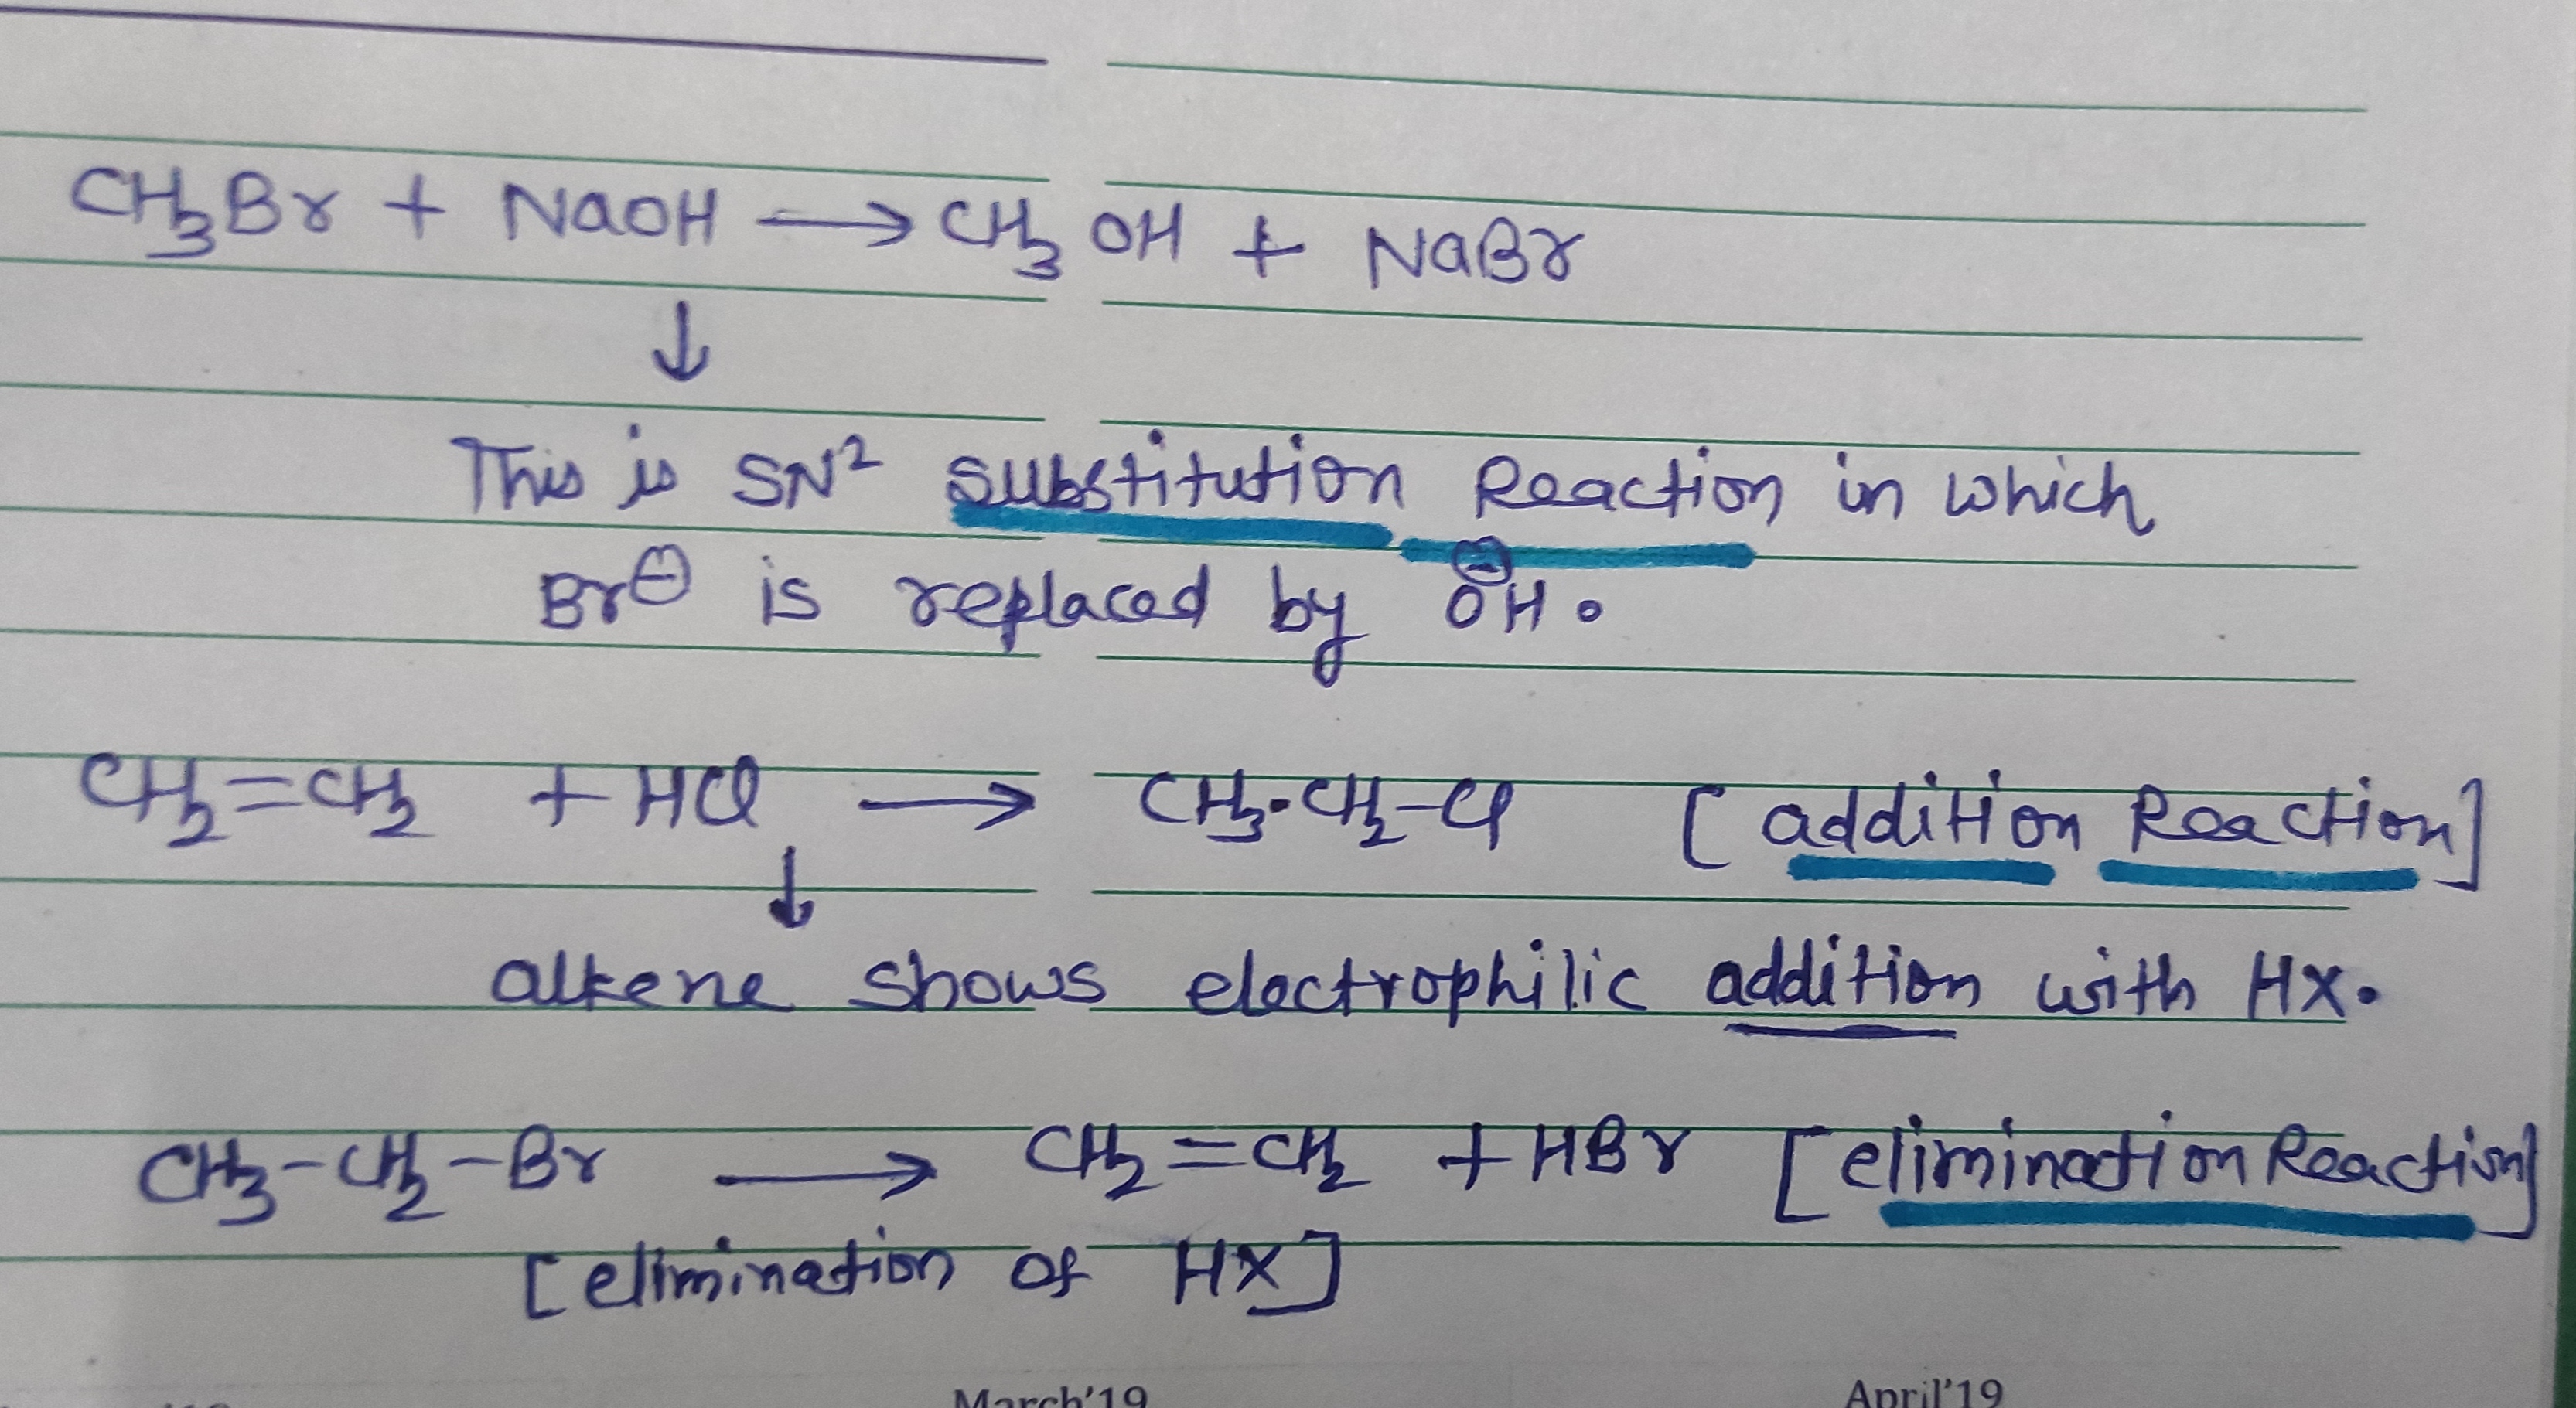 CH₃Br + NaOH → CH₃ OH + NaBr
↓
This is SN² substitution Reaction in which
Br⊖ is replaced by ⊖OH.
CH₂=CH₂ + HCl → CH₃-CH₂-Cl [addition Reaction]
↓
alkene shows electrophilic addition with HX.
CH₃-CH₂-Br → CH₂=CH₂ + HBr [elimination Reaction]
[elimination of HX]
March'19 April'19